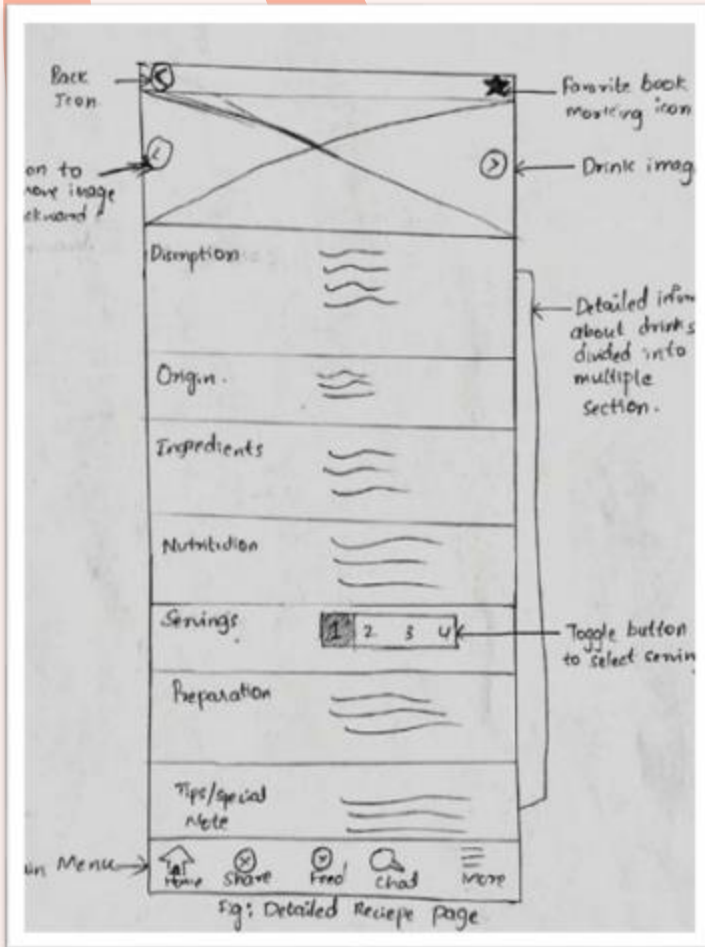 Back
Icon
Favorite book
marking icon
on to
move image
ckward
Drink imag
Discription
Detailed infom
about drinks
divided into
multiple
section.
Origin.
Ingredients
Nutritidion
Servings
1 2 3 4
Toggle button
to select servin
Preparation
Tips/special
Note
in Menu
Home Share Feed Chat More
Fig: Detailed Reciepe page